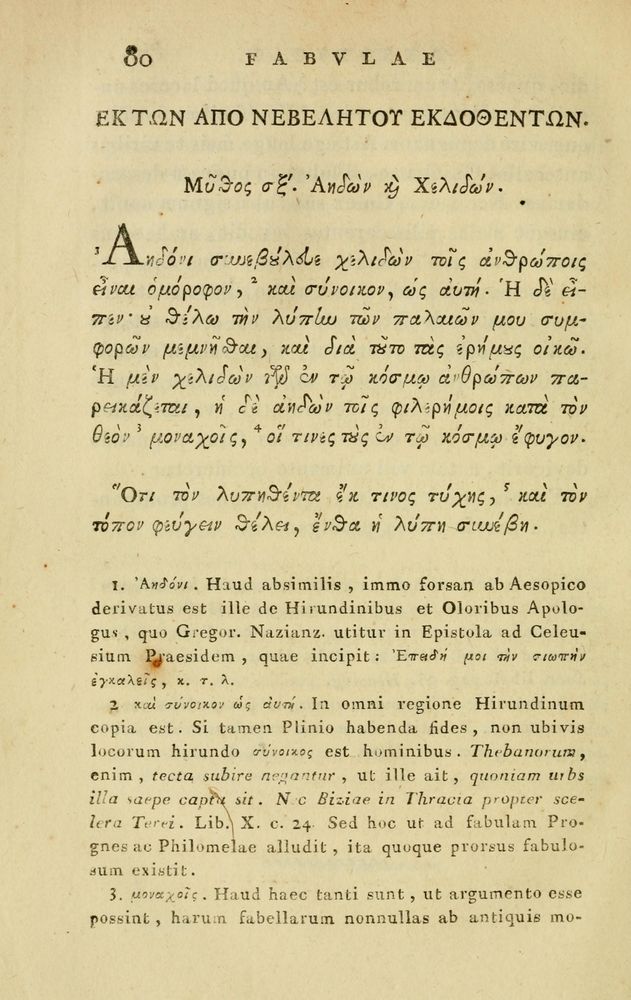 80 FABVLAE
ΕΚ ΤΩΝ ΑΠΟ ΝΕΒΕΛΗΤΟΥ ΕΚΔΟΘΕΝΤΩΝ.
Μῦθος σξʹ. Ἀηδὼν καὶ Χελιδών.
¹Ἀηδόνι συνεβούλευε χελιδὼν τοῖς ἀνθρώποις
εἶναι ὁμόροφον, ² καὶ σύνοικον, ὡς αὐτή. Ἡ δὲ εἶ-
πεν· οὐ θέλω τὴν λύπην τῶν παλαιῶν μου συμ-
φορῶν μεμνῆσθαι, καὶ διὰ τοῦτο τὰς ἐρήμους οἰκῶ.
Ἡ μὲν χελιδὼν τῶν ἐν τῷ κόσμῳ ἀνθρώπων πα-
ρεικάζεται, ἡ δὲ ἀηδὼν τοῖς φιλερήμοις κατὰ τὸν
θεὸν ³ μοναχοῖς, ⁴ οἵ τινες τοὺς ἐν τῷ κόσμῳ ἔφυγον.
Ὅτι τὸν λυπηθέντα ἔκ τινος τύχης, ⁵ καὶ τὸν
τόπον φεύγειν θέλει, ἔνθα ἡ λύπη συνέβη.
1. Ἀηδόνι. Haud absimilis, immo forsan ab Aesopico
derivatus est ille de Hirundinibus et Oloribus Apolo-
gus, quo Gregor. Nazianz. utitur in Epistola ad Celeu-
sium Praesidem, quae incipit: Ἐπειδή μοι τὴν σιωπὴν
ἐγκαλεῖς, κ. τ. λ.
2 καὶ σύνοικον ὡς αὐτή. In omni regione Hirundinum
copia est. Si tamen Plinio habenda fides, non ubivis
locorum hirundo σύνοικος est hominibus. Thebanorum,
enim, tecta subire negantur, ut ille ait, quoniam urbs
illa saepe capta sit. Nec Biziae in Thracia propter sce-
lera Terei. Lib. X. c. 24. Sed hoc ut ad fabulam Pro-
gnes ac Philomelae alludit, ita quoque prorsus fabulo-
sum existit.
3. μοναχοῖς. Haud haec tanti sunt, ut argumento esse
possint, harum fabellarum nonnullas ab antiquis mo-